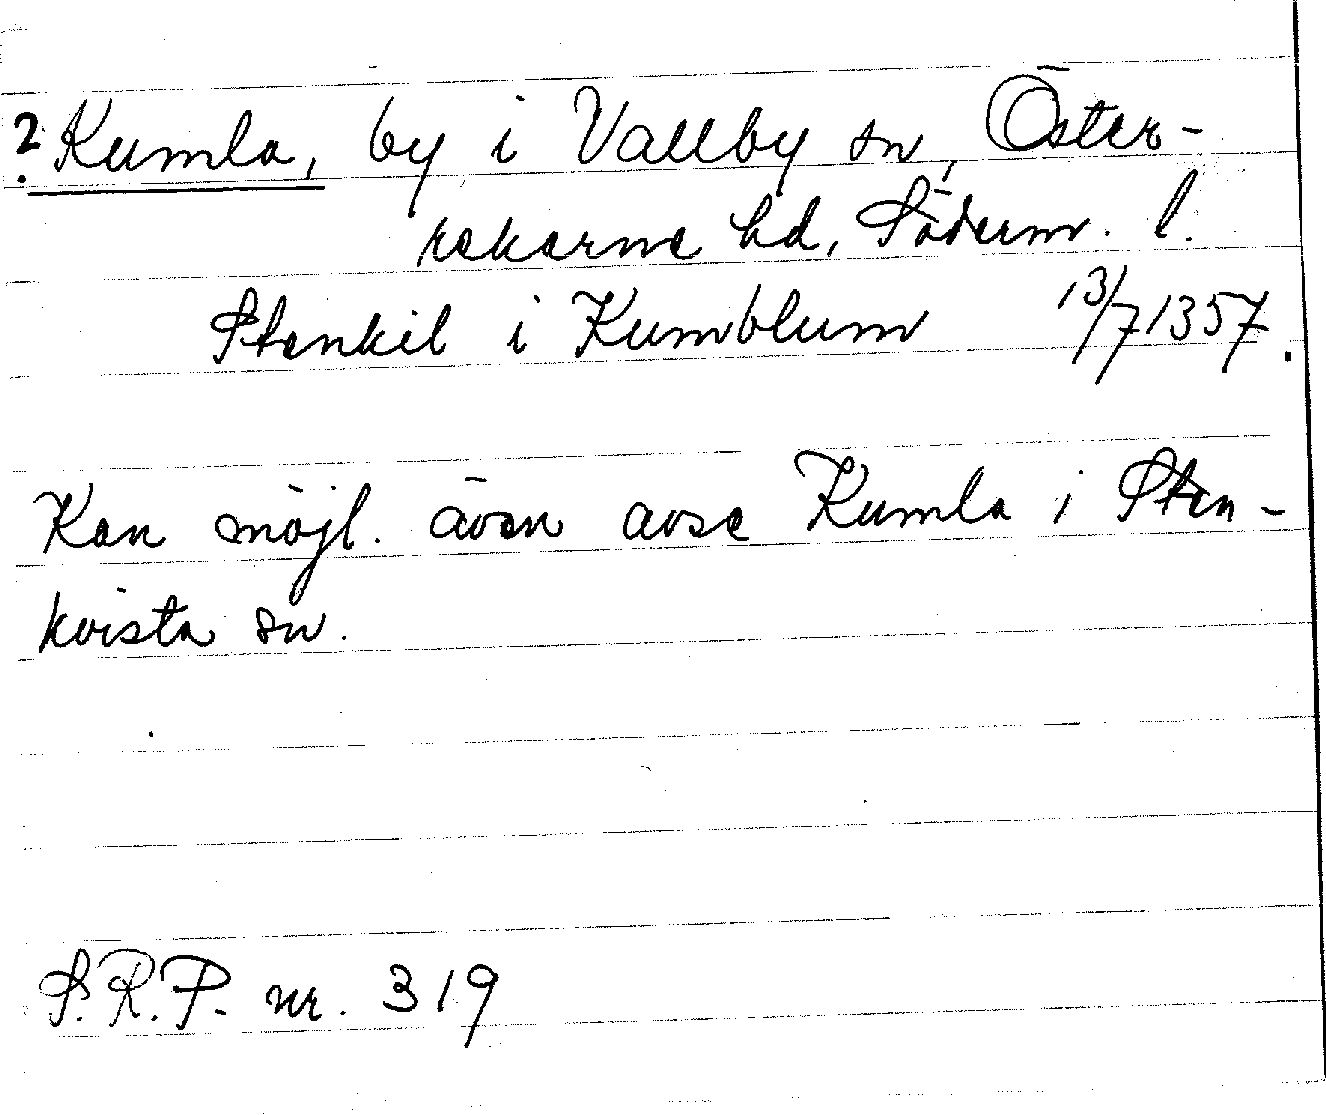 2. Kumla, by i Vallby sn, Öster-
rekarne hd, Söderm. l.
Stenkil i Kumblum 13/7 1357.
Kan möjl. även avse Kumla i Sten-
kvista sn.
S.R.P. nr. 319